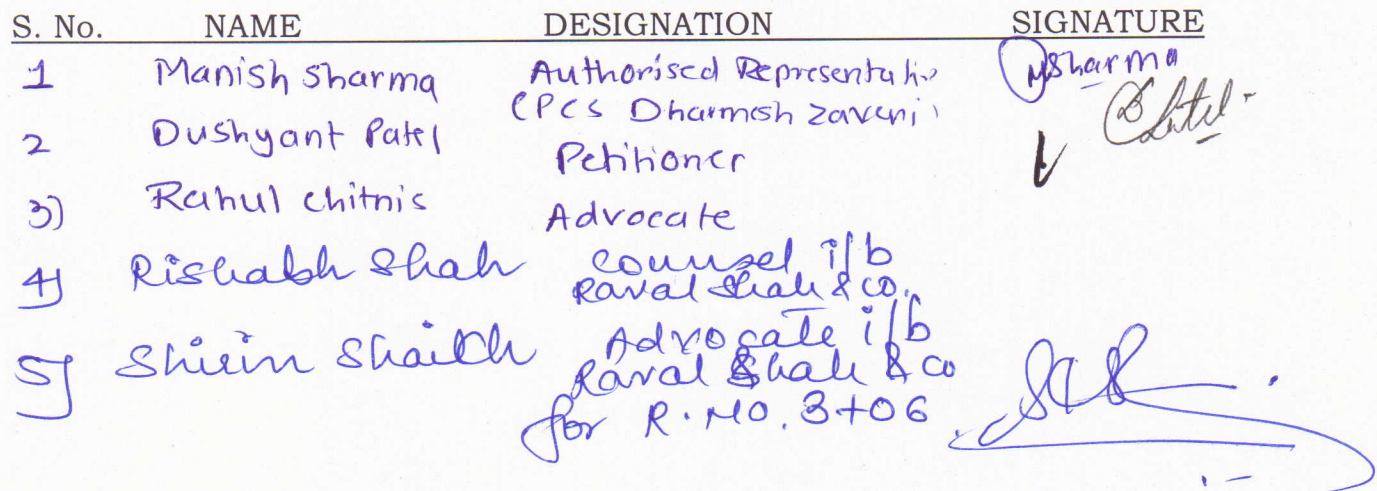 S. No. NAME DESIGNATION SIGNATURE
1 Manish Sharma Authorised Representative MSharma
(PCS Dharmesh Zaveri)
2 Dushyant Patel Petitioner
3) Rahul Chitnis Advocate
4) Rishabh Shah Counsel i/b
Raval Shah & Co.
5) Shirin Shaikh Advocate i/b
Raval Shah & Co
for R. No. 3 to 6